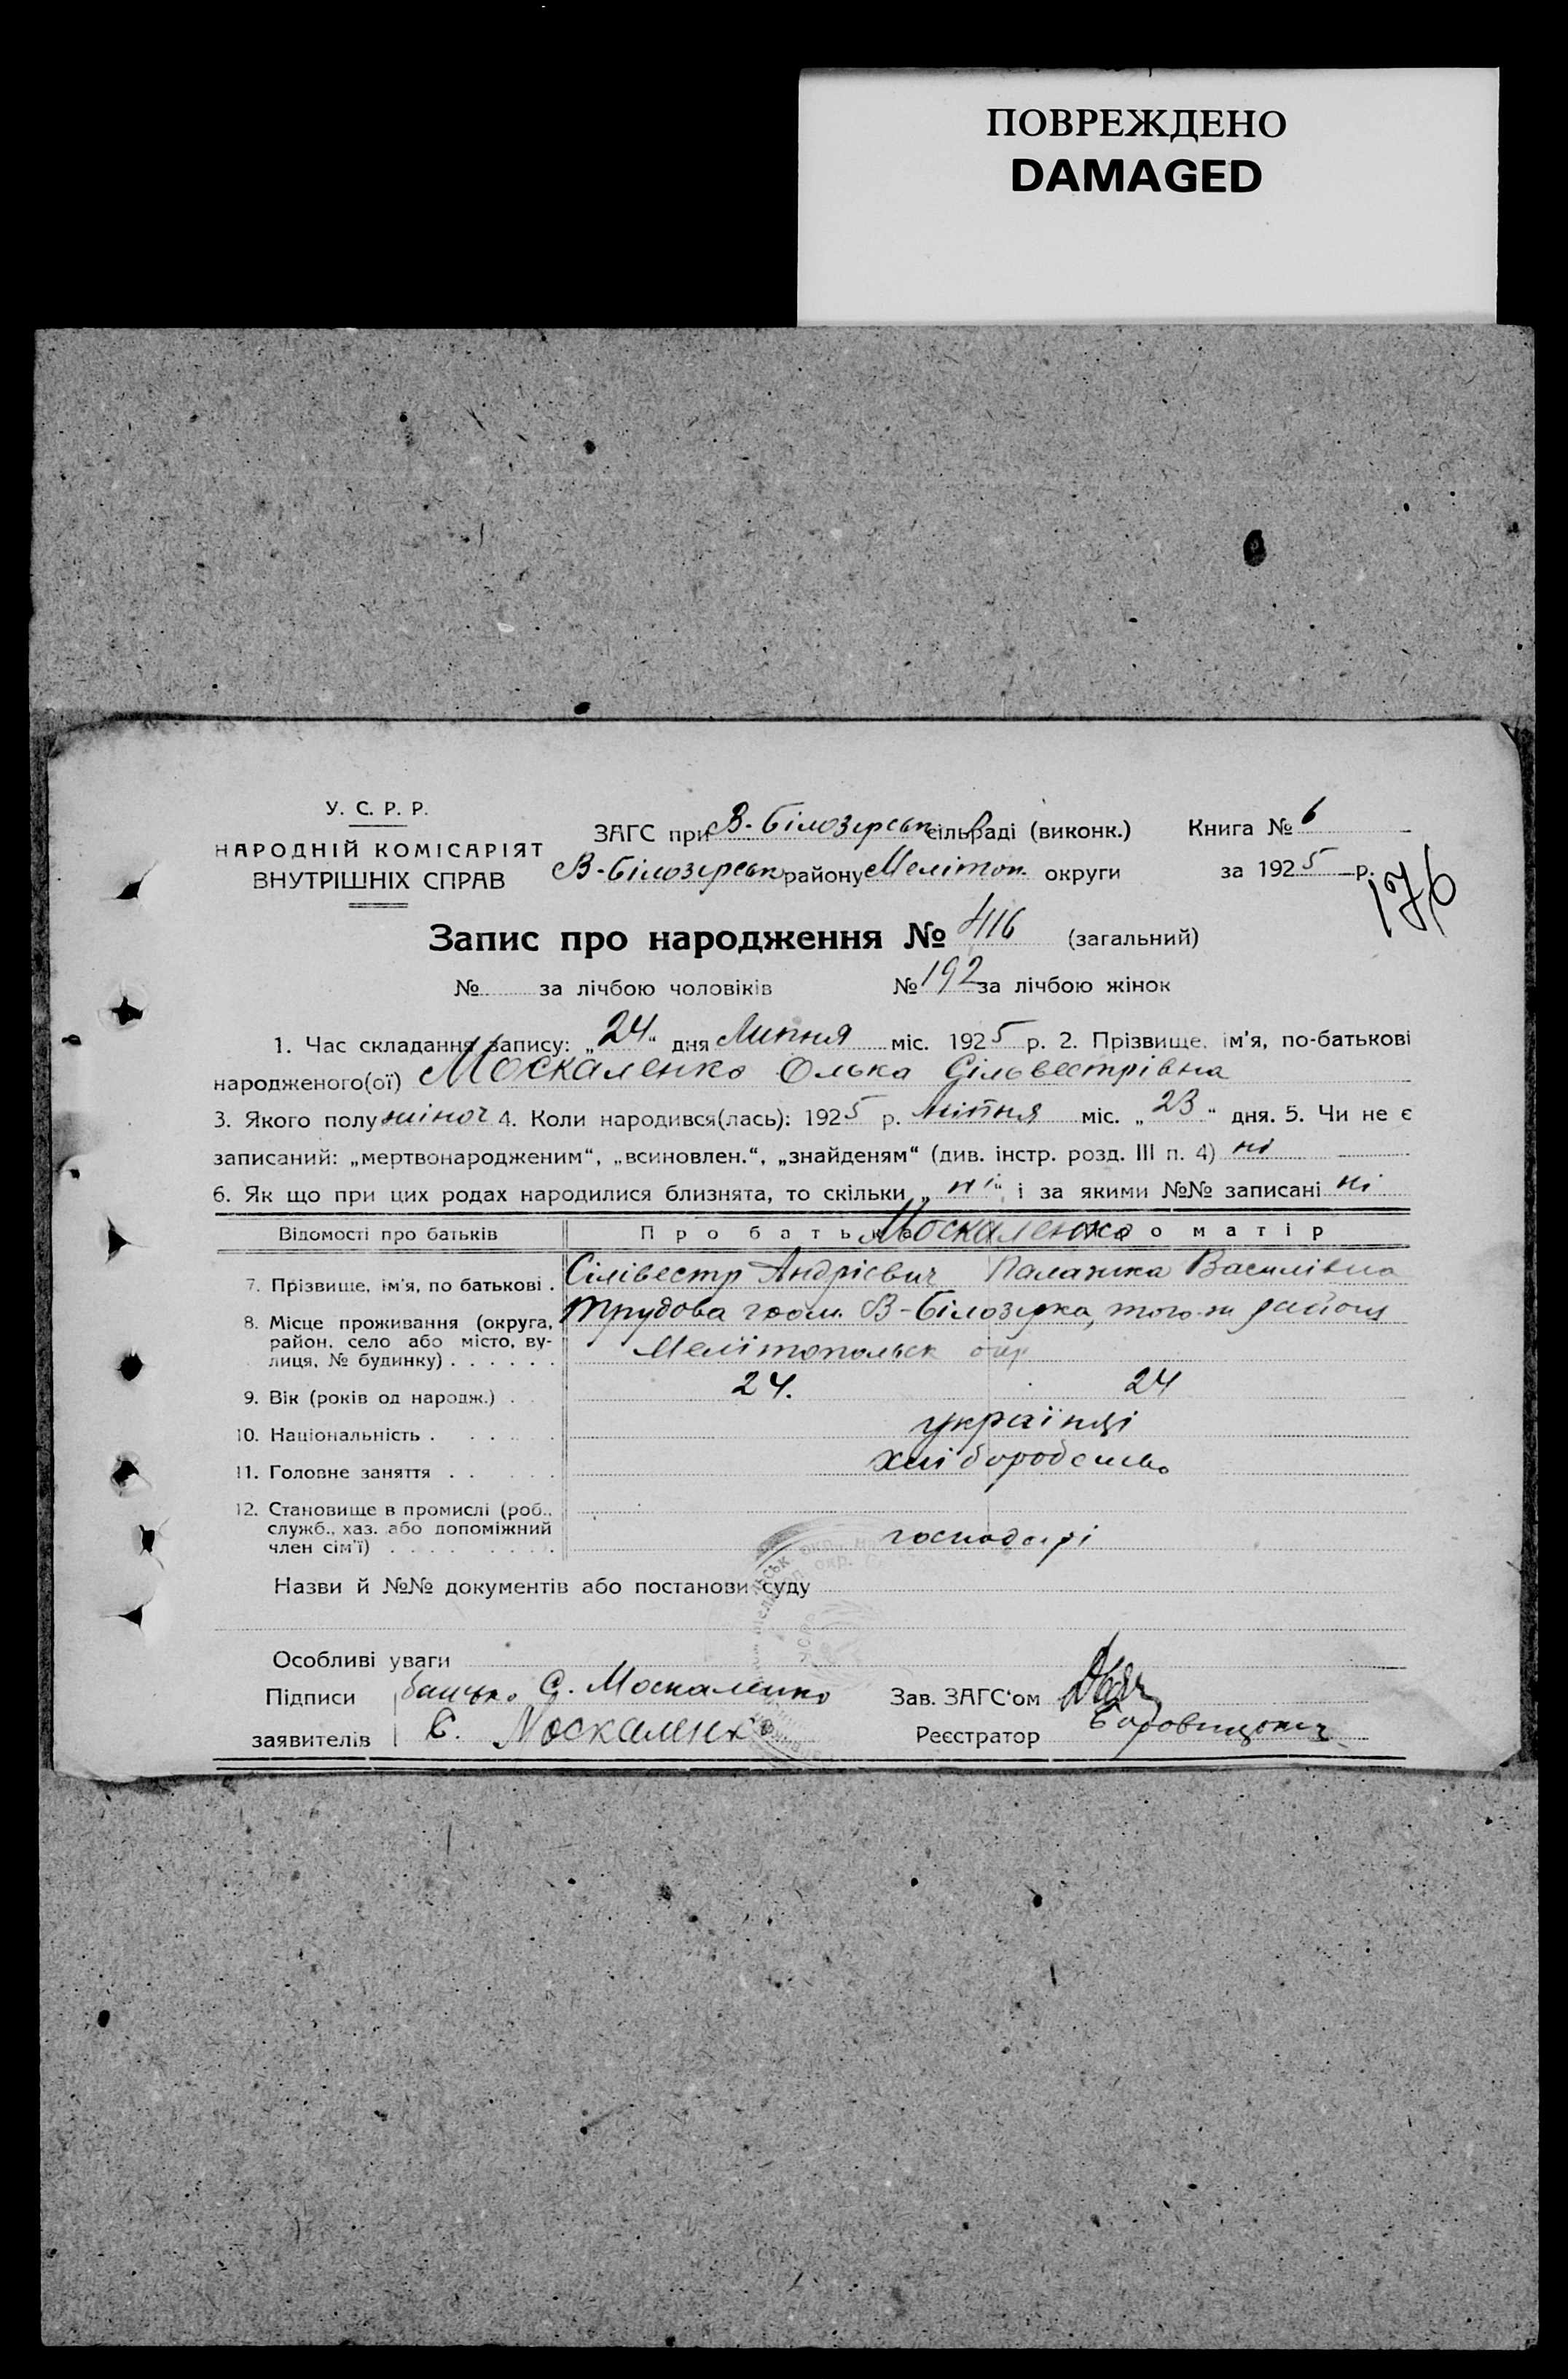 ПОВРЕЖДЕНО
DAMAGED
У. С. Р. Р.
НАРОДНІЙ КОМІСАРІЯТ
ВНУТРІШНІХ СПРАВ
ЗАГС при В-Білозірськ сільраді (виконк.) Книга № 6
В-Білозірськ району Мелітоп. округи за 1925 р.
176
Запис про народження № 416 (загальний)
№ за лічбою чоловіків № 192 за лічбою жінок
1. Час складання запису: „24“ дня Липня міс. 1925 р. 2. Прізвище, ім'я, по-батькові
народженого(ої) Москаленко Олька Сільвестрівна
3. Якого полу жіноч 4. Коли народився(лась): 1925 р. липня міс. „23“ дня. 5. Чи не є
записаний: „мертвонародженим“, „всиновлен.“, „знайденям“ (див. інстр. розд. III п. 4) ні
6. Як що при цих родах народилися близнята, то скільки „ні“ і за якими №№ записані ні
Відомості про батьків Про батька Москаленко Про матір
7. Прізвище, ім'я, по батькові . Сілівестр Андрієвич Палажка Василівна
8. Місце проживання (округа, Трудова В-Білозірка, того-ж району
район, село або місто, ву-
лиця, № будинку) . . . . . . Мелітопольськ окр
9. Вік (років од народж.) . . 24. 24
10. Національність . . . . . українці
11. Головне заняття . . . . . хліборобство
12. Становище в промислі (роб.,
служб., хаз. або допоміжний
член сім'ї) . . . . . . . . господарі
Назви й №№ документів або постанови суду
Особливі уваги
Підписи батько С. Москаленко Зав. ЗАГС'ом
заявителів С. Москаленко Реєстратор